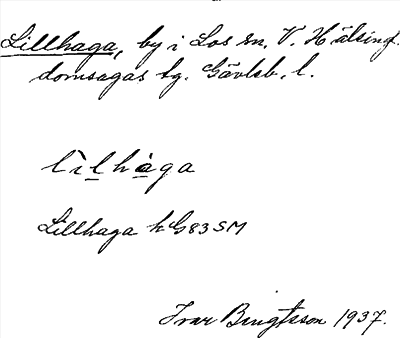 Lillhaga, by i Los sn, V. Hälsing-
domsagas tg. Gävleb. l.
lìlhàga
Lillhaga hG83SM
Ivar Bengtsson 1937.